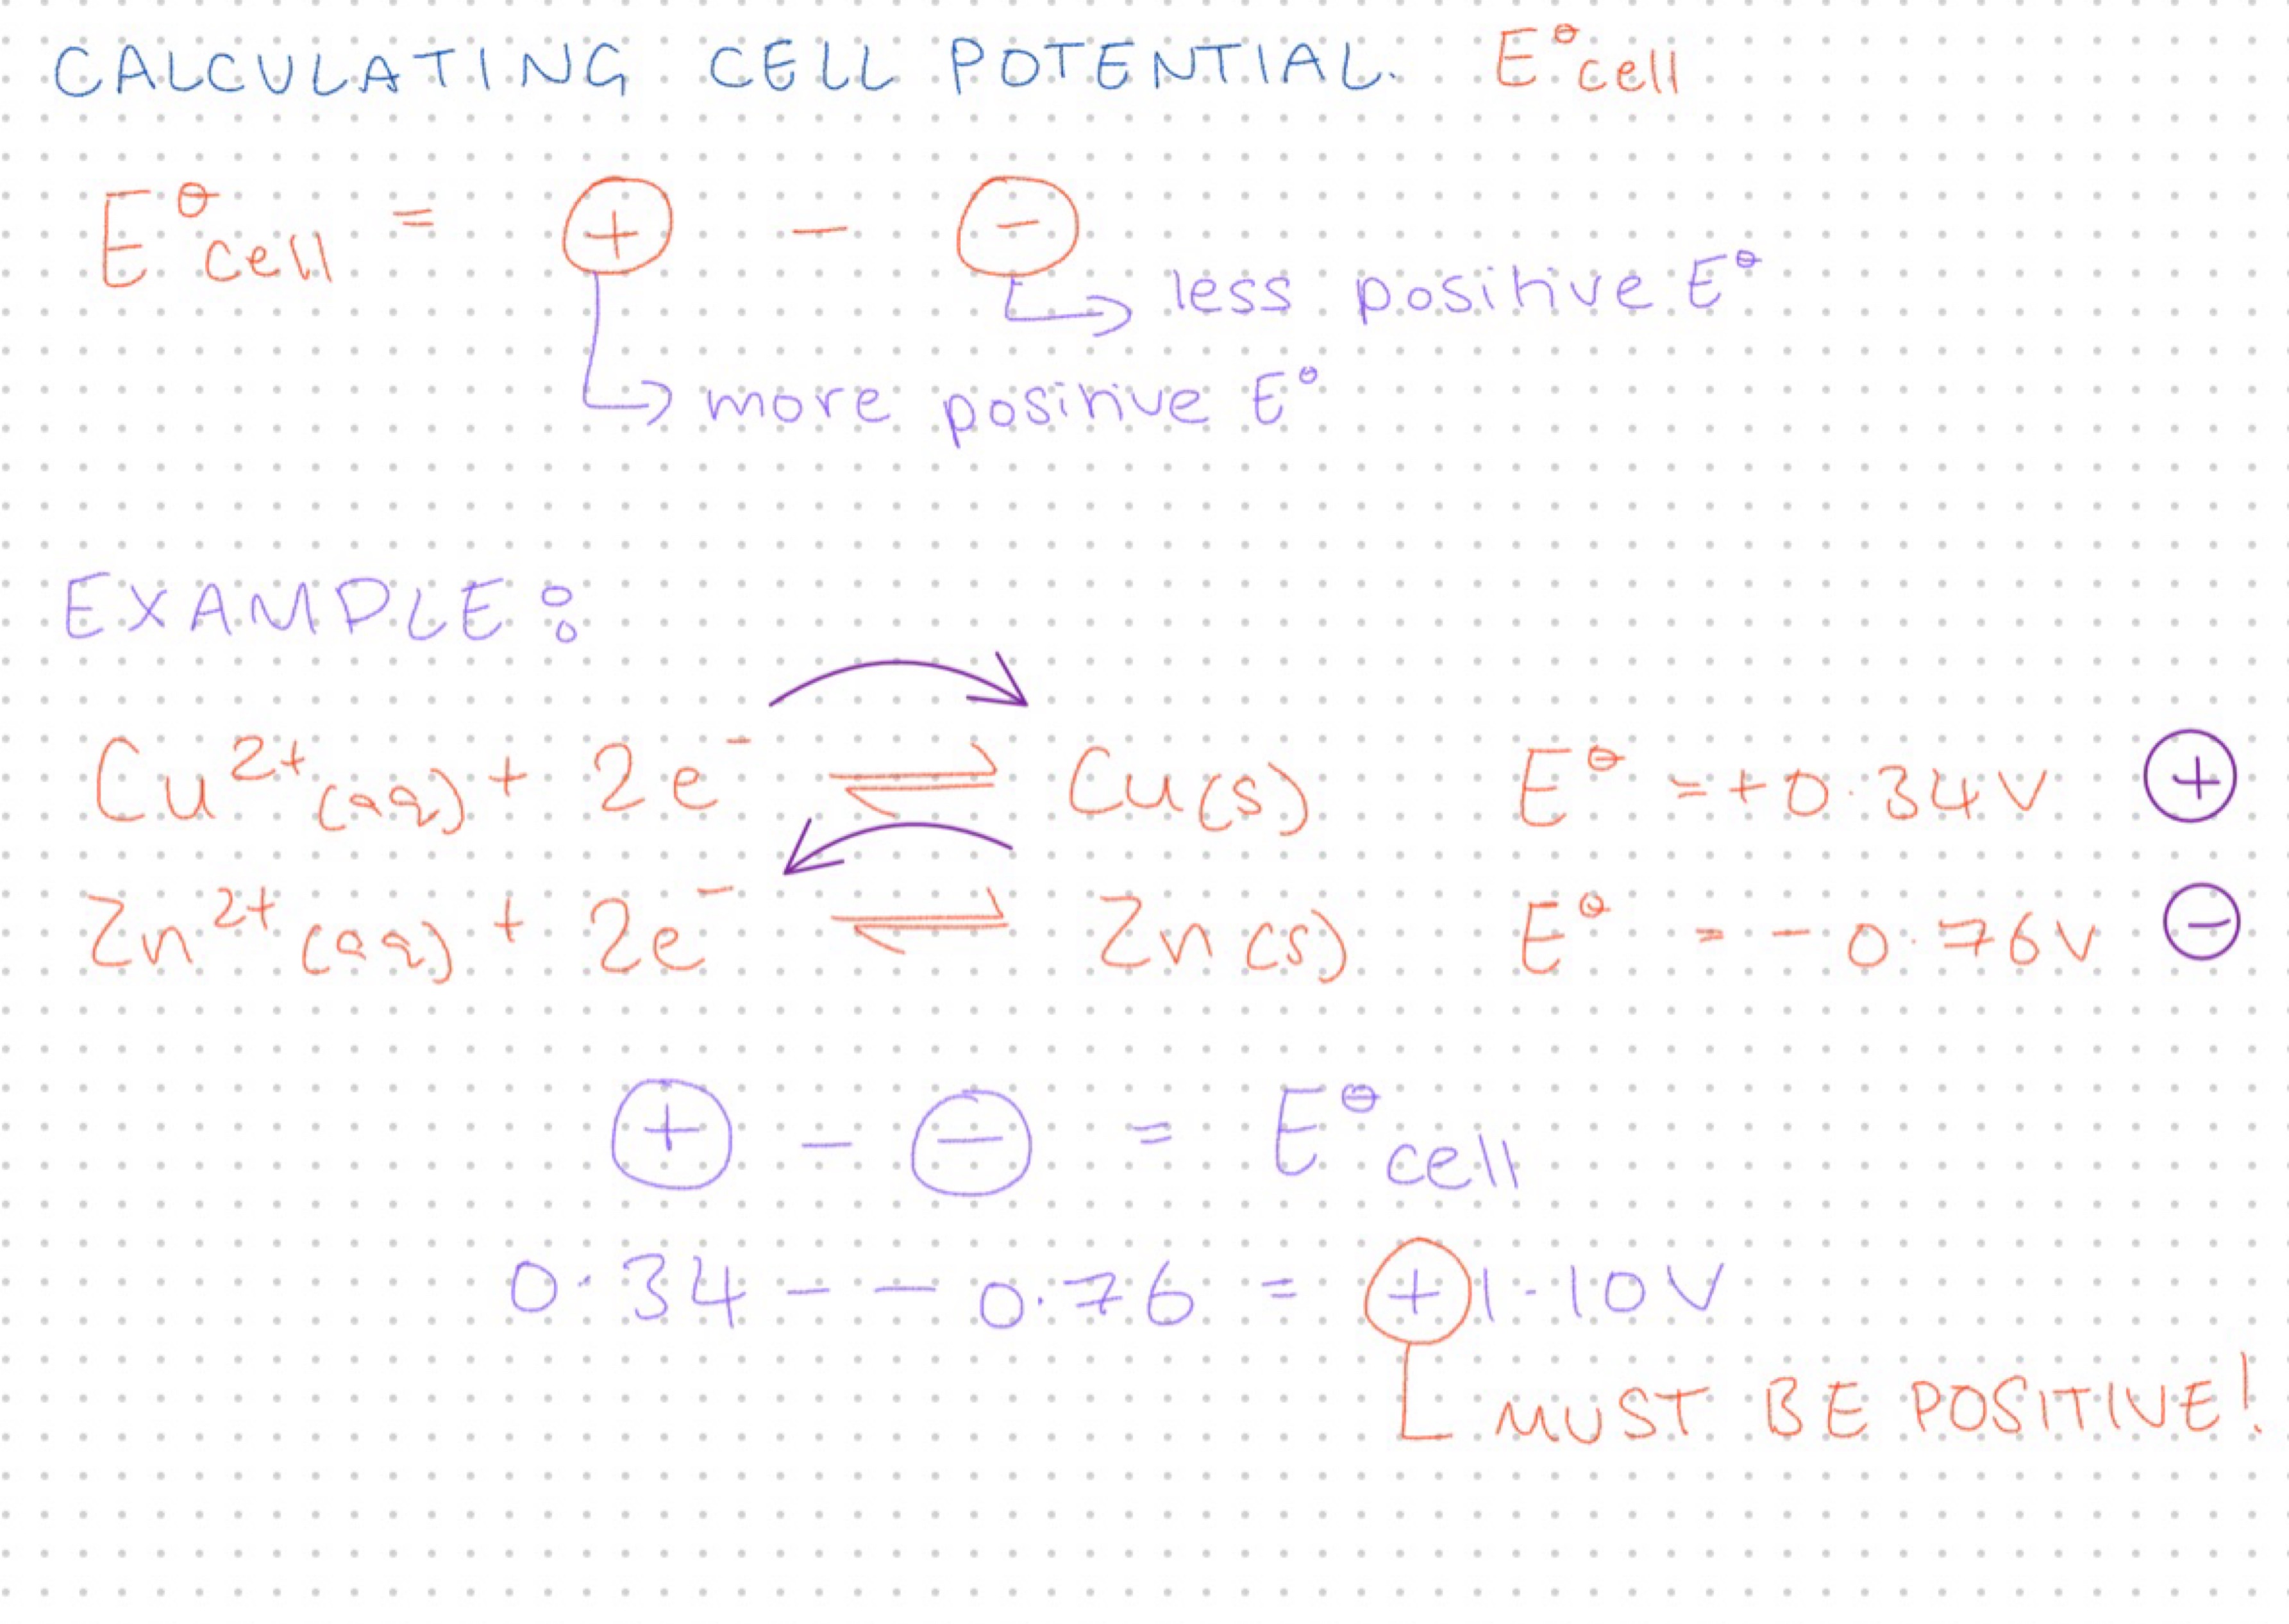 CALCULATING CELL POTENTIAL. E⦵cell
E⦵cell = ⊕ - ⊖
less positive E⦵
more positive E⦵
EXAMPLE:
Cu²⁺(aq) + 2e⁻ ⇌ Cu(s) E⦵ = +0.34V ⊕
Zn²⁺(aq) + 2e⁻ ⇌ Zn(s) E⦵ = -0.76V ⊖
⊕ - ⊖ = E⦵cell
0.34 - - 0.76 = +1.10V
MUST BE POSITIVE!